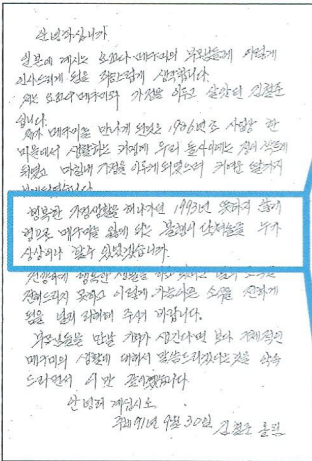 안녕하십니까
일본에 계시는 요꼬다 메구미의 부모님들께 이렇게
인사드리게 됨을 생각합니다.
저는 요꼬다 메구미와 가정을 이루고 살았던 김철준
입니다.
제가 메구미를 만나게 된것은 1986년 한
마을에서 생활하는 과정에 우리 둘사이에는 정이
되였고 마침내 가정을 이루게 되였으며 귀여운 딸까지
행복한 가정생활을 해나가던 1993년 뜻하지 않게
병으로 메구미를 잃게 되는 누가
상상이나 할수 있었겠습니까.
행복한 생활을
전해드리지 못하고 이렇게 가슴아픈 소식을 전하게
됨을 널리 리해하여 주시기 바랍니다.
부모님들을 만날 기회가 생긴다면 보다 구체적인
메구미의 생활에 대해서 말씀드리겠다는것을 약속
드리면서 이만 끝이겠습니다
안녕히 계십시오.
주체91년 9월 30일 김철준 올림